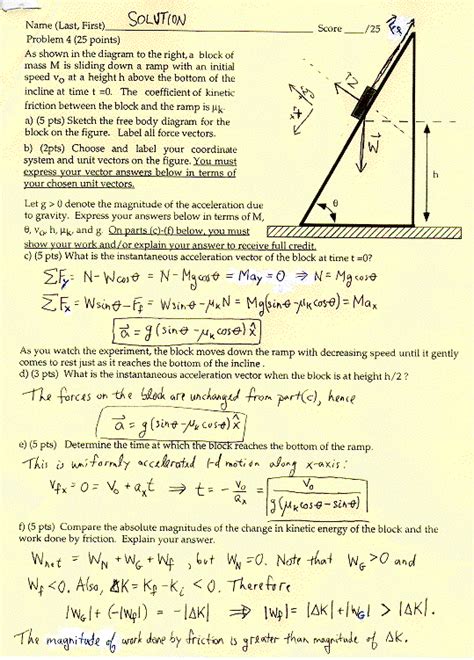 Name (Last, First) SOLUTION
Score ___/25
Problem 4 (25 points)
As shown in the diagram to the right, a block of
mass M is sliding down a ramp with an initial
speed v₀ at a height h above the bottom of the
incline at time t =0. The coefficient of kinetic
friction between the block and the ramp is μk.
a) (5 pts) Sketch the free body diagram for the
block on the figure. Label all force vectors.
b) (2pts) Choose and label your coordinate
system and unit vectors on the figure. You must
express your vector answers below in terms of
your chosen unit vectors.
Let g > 0 denote the magnitude of the acceleration due
to gravity. Express your answers below in terms of M,
θ, v₀, h, μk, and g. On parts (c)-(f) below, you must
show your work and/or explain your answer to receive full credit.
N
W
h
θ
c) (5 pts) What is the instantaneous acceleration vector of the block at time t =0?
ΣFy = N - W cosθ = N - Mg cosθ = May = 0 ⇒ N = Mg cosθ
ΣFx = W sinθ - Ff = W sinθ - μkN = Mg(sinθ - μk cosθ) = Max
a⃗ = g(sinθ - μk cosθ) x̂
As you watch the experiment, the block moves down the ramp with decreasing speed until it gently
comes to rest just as it reaches the bottom of the incline .
d) (3 pts) What is the instantaneous acceleration vector when the block is at height h/2 ?
The forces on the block are unchanged from part(c), hence
a⃗ = g(sinθ - μk cosθ) x̂
e) (5 pts) Determine the time at which the block reaches the bottom of the ramp.
This is uniformly accelerated 1-d motion along x-axis:
Vfx = 0 = V₀ + axt ⇒ t = - V₀/ax = V₀/g(μk cosθ - sinθ)
f) (5 pts) Compare the absolute magnitudes of the change in kinetic energy of the block and the
work done by friction. Explain your answer.
Wnet = WN + WG + Wf , but WN = 0. Note that WG > 0 and
Wf < 0. Also, ΔK = Kf - Ki < 0. Therefore
|WG| + (-|Wf|) = -|ΔK| ⇒ |Wf| = |ΔK| + |WG| > |ΔK|.
The magnitude of work done by friction is greater than magnitude of ΔK.